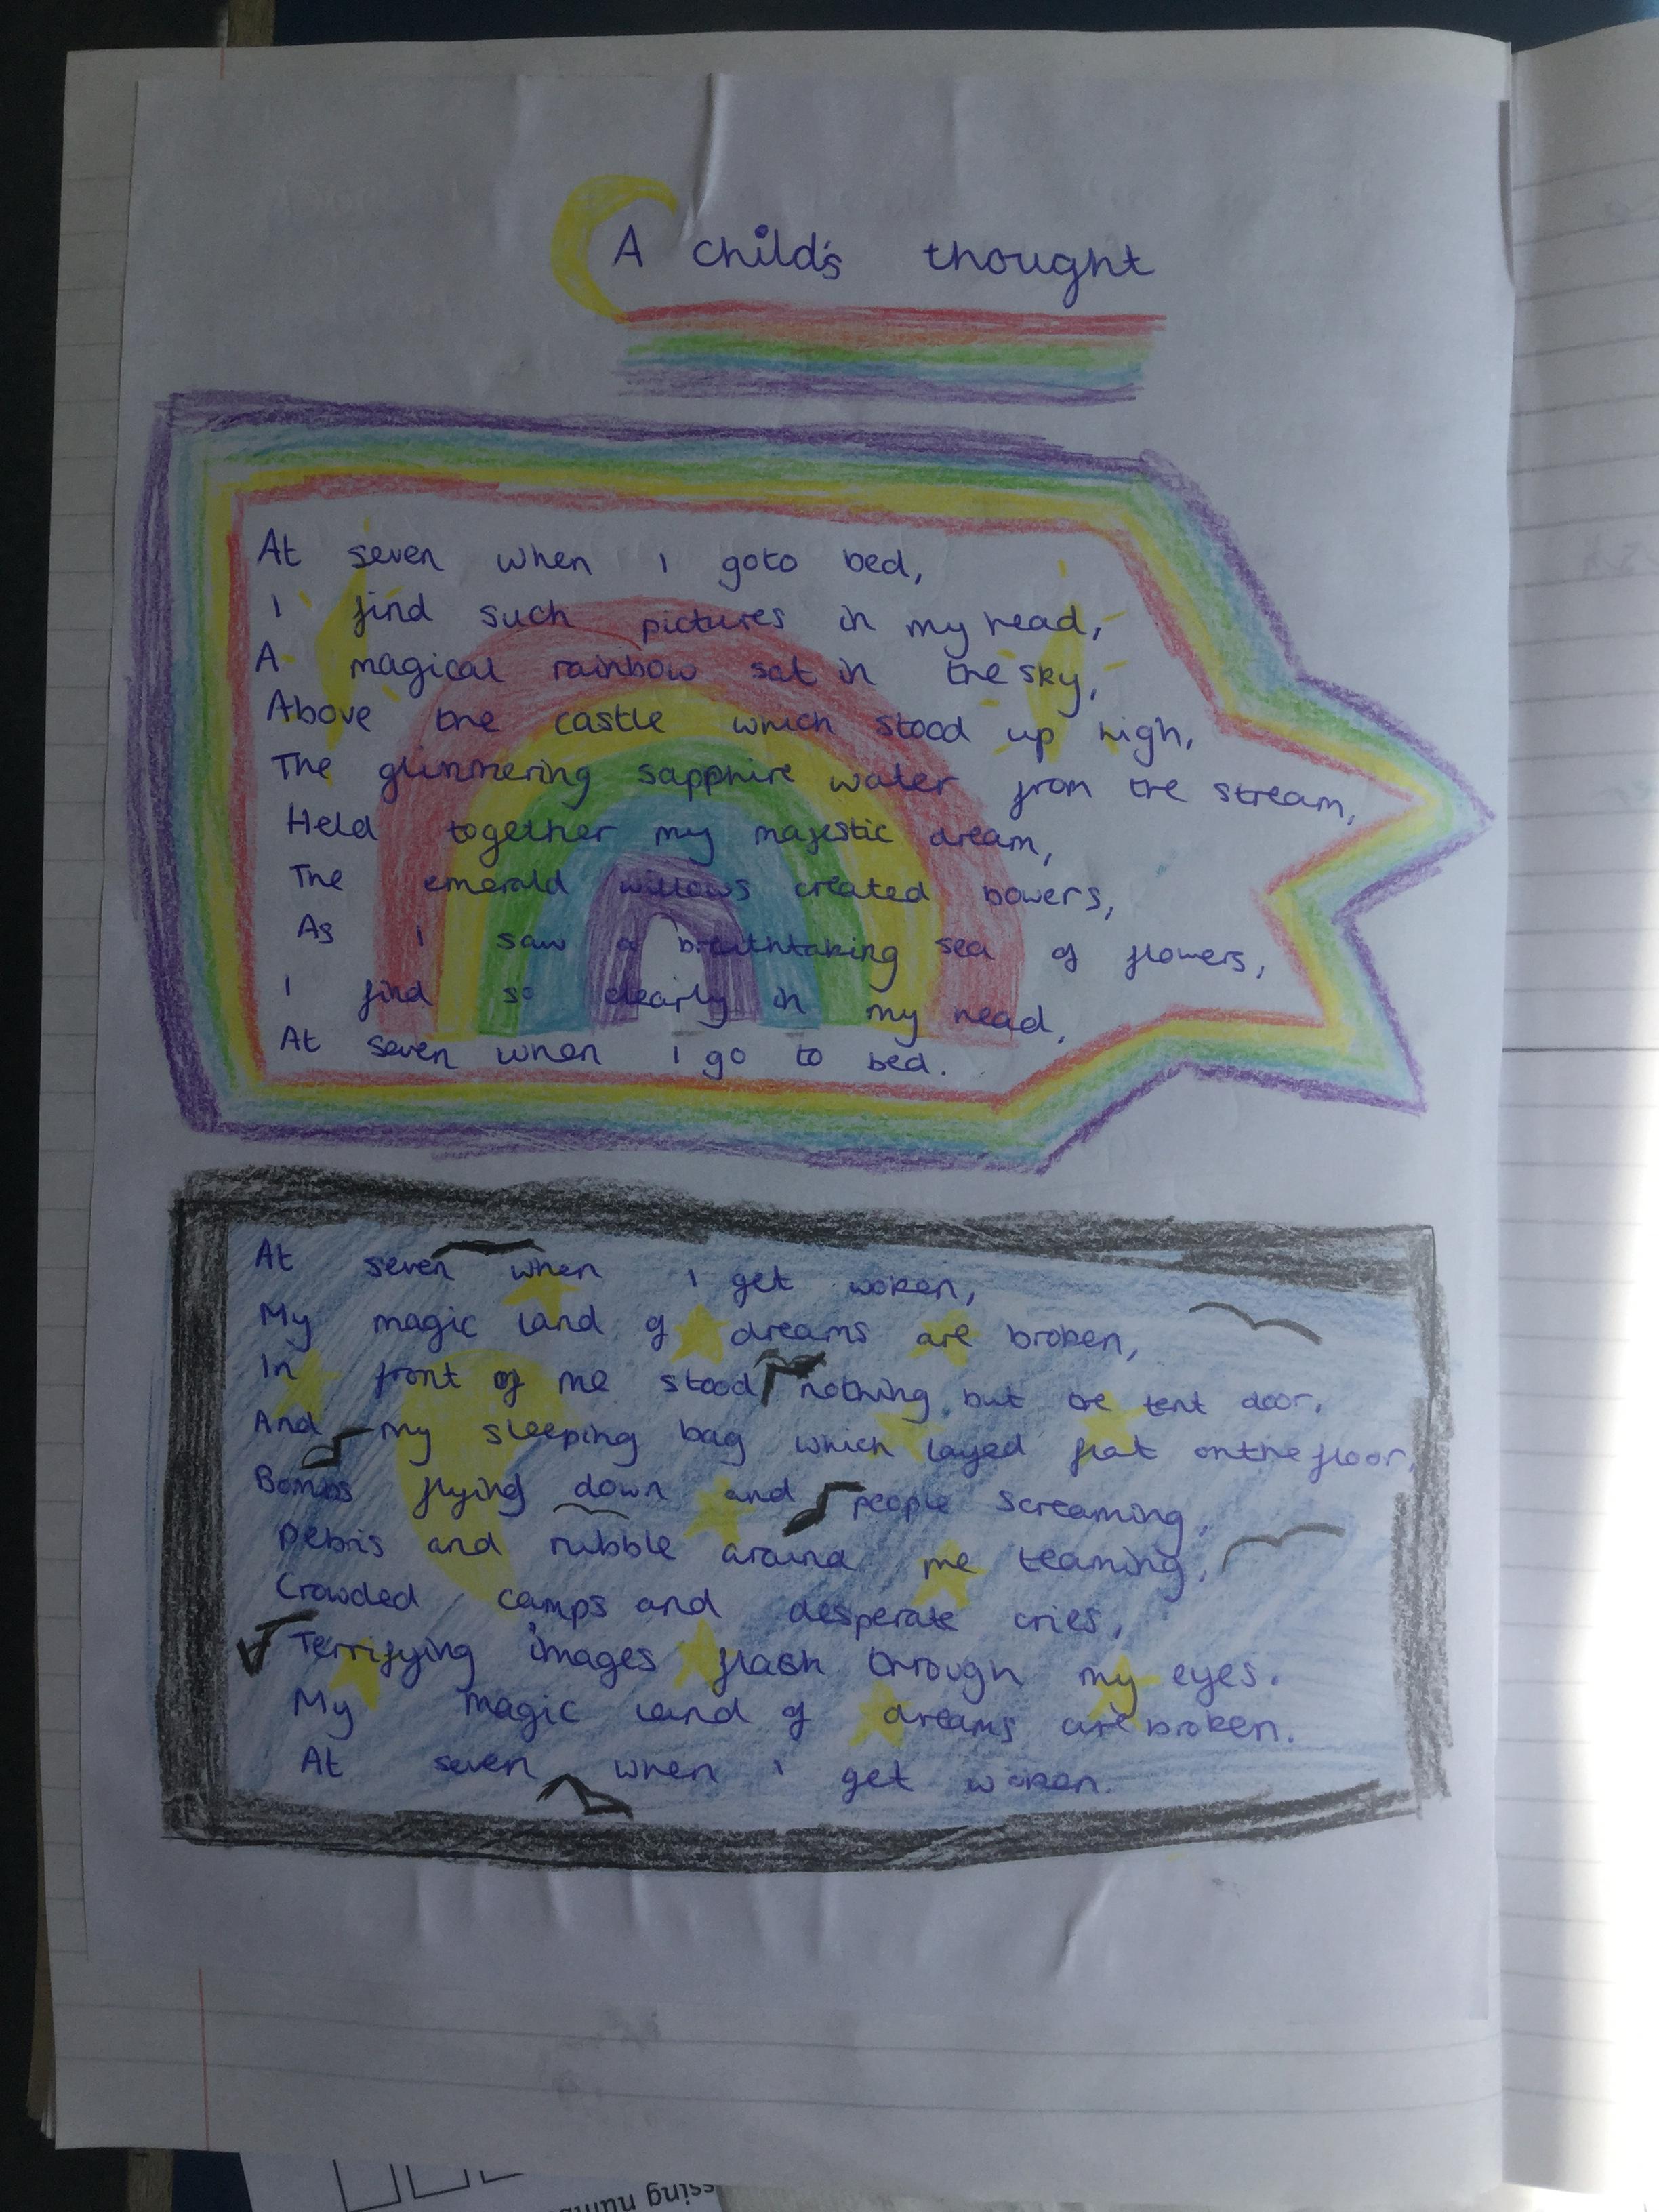 A child's thought
At seven when I goto bed,
I find such pictures in my head,
A magical rainbow sat in the sky,
Above the castle which stood up high,
The glimmering sapphire water from the stream,
Held together my majestic dream,
The emerald willows created bowers,
As I saw a breathtaking sea of flowers,
I find so clearly in my head,
At seven when I go to bed.
At seven when I get woken,
My magic land of dreams are broken,
In front of me stood nothing but the tent door,
And my sleeping bag which layed flat on the floor,
Bombs flying down and people screaming,
Debris and rubble around me teaming,
Crowded camps and desperate cries,
Terrifying images flash through my eyes.
My magic land of dreams are broken.
At seven when I get woken.